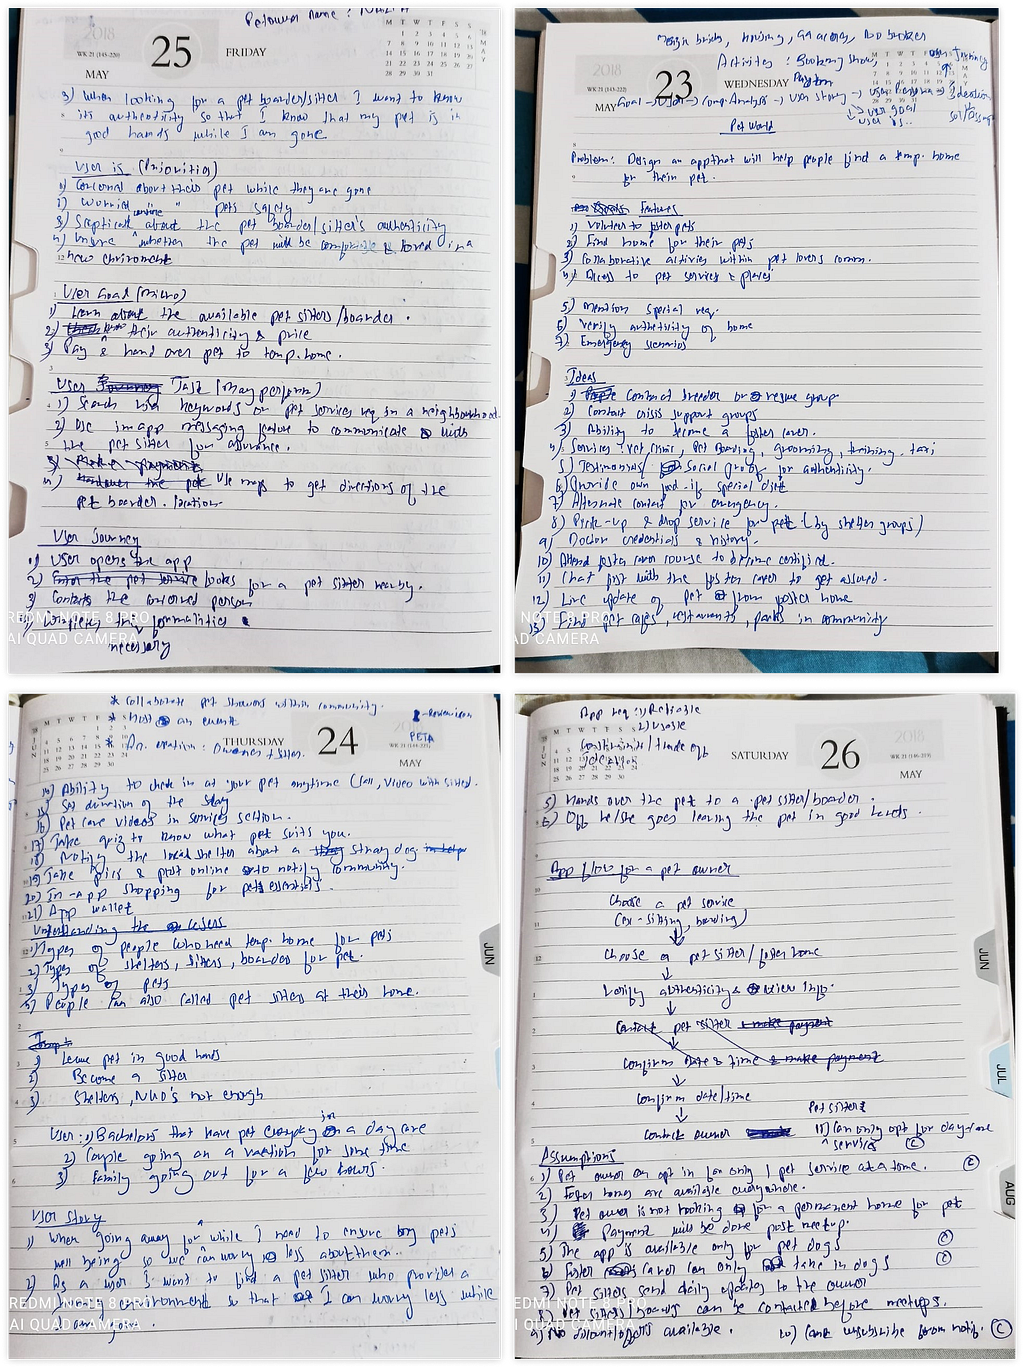 Petowner name :
2018
WK 21 (145-220)
25
FRIDAY
MAY
3) When looking for a pet boarder/sitter I want to know
its authenticity so that I know that my pet is in
good hands while I am gone
User is (Priorities)
1) Concerned about their pet while they are gone
2) Worried " pets safety
3) Skeptical about the pet boarder/sitter's authenticity
4) Unsure whether the pet will be comfortable & loved in a
new enviroment
User Goal (Micro)
1) Learn about the available pet sitters/boarder.
2) know their authenticity & price
3) Pay & hand over pet to temp. home.
User Task (May perform)
1) Search via keywords or pet services req in a neighbourhood.
2) Use in app messaging feature to communicate with
the pet sitter for assurance.
4) Use maps to get directions of the
pet boarder. location
User Journey
1) User opens the app
2) looks for a pet sitter nearby.
3) Contacts the concerned person
4) Completes the formalities
necessary
REDMI NOTE 8 PRO
AI QUAD CAMERA
Design brief, housing, GA across, No broker
Activities : Booking show,
2018
WK 21 (143-222)
23
WEDNESDAY
MAY
Goal → User → Comp. Analysis → User story → User Persona → Ideation
User goal
Pet World
Problem: Design an app that will help people find a temp. home
for their pet.
Features
1) Volunteer to foster pets
2) Find home for their pets
3) Collaborative activies within pet lovers comm.
4) Access to pet services & places
5) Mention special req.
6) Verify authenticity of home
7) Emergency scenarios
Ideas
1) Contact breeder or rescue group.
2) Contact crisis support groups
3) Ability to become a foster carer.
4) Services: Vet clinic, Pet Boarding, grooming, training, taxi
5) Testimonials Social proof for authenticity.
6) Provide own food-if special diet
7) Alternate contact for emergency.
8) Pick-up & drop service for pet (by shelter groups)
9) Doctor credentials & history.
10) Attend foster carer course to become certified.
11) Chat first with the foster carer to get assured.
12) Live update of pet from foster home
13) Find pet cafes, restaurants, parks in community
REDMI NOTE 8 PRO
AI QUAD CAMERA
* Collaborate pet showers within community.
* Host an event
THURSDAY
24
WK 21 (144-221)
MAY
PETA
14) Ability to check in at your pet anytime (Call, Video with sitter).
15) Set duration of the stay
16) Pet care videos in services section.
17) Take quiz to know what pet suits you.
18) Notify the local shelter about a stray dog
19) Take pics & post online to notify community.
20) In-app shopping for pet essentials.
21) App wallet
Understanding the Users
1) Types of people who need temp. home for pets
2) Types of shelters, sitters, boarder for pet.
3) Types of pets
4) People can also called pet sitters at their home.
1) Leave pet in good hands
2) Become a sitter
3) Shelters, NGO's not enough
User: 1) Bachelors that have pet everyday in a day care
2) Couple going on a vacation for some time
3) Family going out for a few hours.
User Story
1) When going away for while I need to ensure my pets
well being so we can worry less about them.
2) As a user I want to find a pet sitter who provides a
environment so that I can worry less while
I am gone.
REDMI NOTE 8 PRO
AI QUAD CAMERA
App req: 1) Reliable
2) Usable
Constraints/trade off
SATURDAY
26
2018
WK 21 (146-219)
MAY
5) Hands over the pet to a pet sitter/boarder.
6) Off he/she goes leaving the pet in good hands.
App flow for a pet owner
Choose a pet service
(ex - sitting, boarding)
Choose a pet sitter/foster home
Verify authenticity & view info.
Contact pet sitter make payment
Confirm date & time & make payment
Confirm date/time
Contact owner
Pet sitters
11) Can only opt for day care
service ©
Assumptions
1) Pet owner can opt in for only 1 pet service at a time. ©
2) Foster homes are available everywhere.
3) Pet owner is not looking for a permanent home for pet
4) Payment will be done post meetup.
5) The app is available only for pet dogs ©
6) Foster carer can only take in dogs ©
7) Pet sitters send daily updates to the owner
8) Pet sitters/boards can be contacted before meetups.
9) No discount/offers available.
10) Can unsubscribe from notif. ©
REDMI NOTE 8 PRO
AI QUAD CAMERA
JUN
JUL
AUG